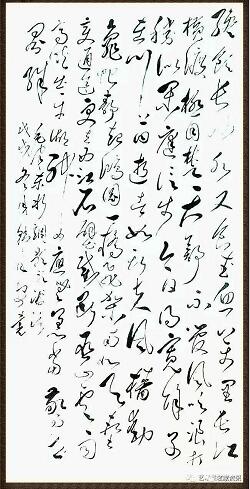 才饮长沙水又食武昌鱼万里长江
横渡极目楚天舒不管风吹浪打
胜似闲庭信步今日得宽馀子
在川上曰逝者如斯夫风樯动
龟蛇静起宏图一桥飞架南北天堑
变通途更立西江石壁截断巫山云雨
高峡出平湖神女应无恙当惊世
界殊
毛泽东水调歌头游泳